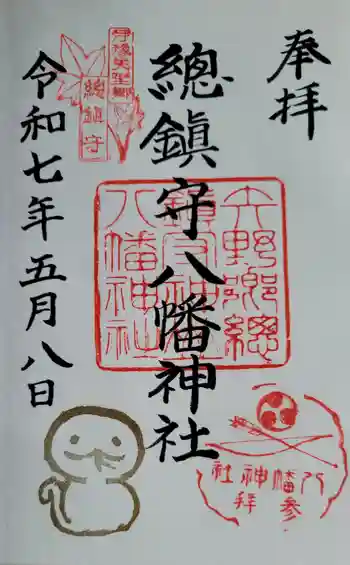 奉拝
總鎮守八幡神社
令和七年五月八日
総鎮守
矢野郷總
鎮守神
八幡神社
八幡神社
参拝